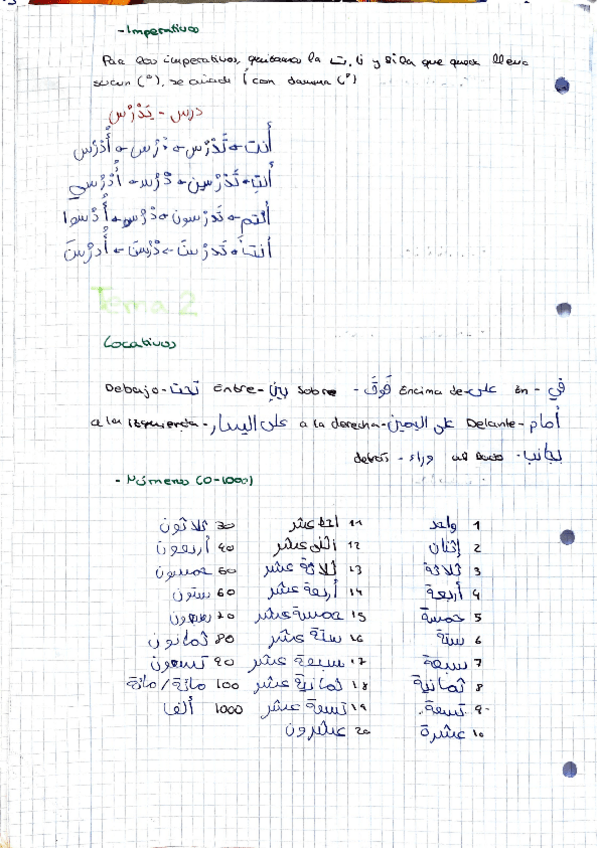 - Imperativos
Para los imperativos, quitamos la ت, ي y si la que queda lleva
sucun (ْ), se añade أ con damma (ُ)
درس - يَدْرُس
أنت - تَدْرُس - دْرُس - أُدْرُس
أنتِ - تَدْرُسين - دْرُسي - أُدْرُسي
أنتم - تَدرسون - دْرُسو - أُدْرُسوا
أنتنَّ - تَدرسْنَ - دْرُسْنَ - أُدرُسْنَ
Tema 2
Locativos
Debajo - تحت Entre - بين Sobre - فَوقَ Encima de - على En - في
a la izquierda - على اليسار a la derecha - على اليمين Delante - أمام
detrás - وراء al lado - بجانب
- Números (0-1000)
1 واحد 11 احد عشر 30 ثلاثون
2 إثنان 12 اثنى عشر 40 أربعون
3 ثلاثة 13 ثلاثة عشر 50 خمسون
4 أربعة 14 أربعة عشر 60 ستون
5 خمسة 15 خمسة عشر 70 سبعون
6 ستة 16 ستة عشر 80 ثمانون
7 سبعة 17 سبعة عشر 90 تسعون
8 ثمانية 18 ثمانية عشر 100 مائة / مائة
9 تسعة 19 تسعة عشر 1000 ألفا
10 عشرة 20 عشرون